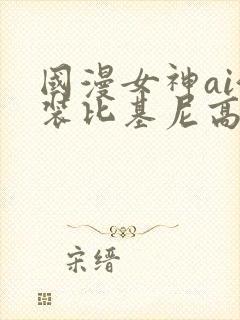 國漫女神ai
装比基尼高
宋缙